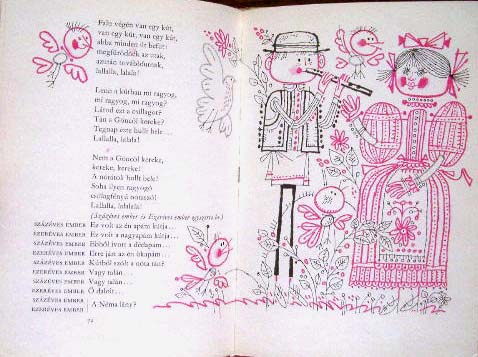 Falu végén van egy kút,
van egy kút, van egy kút,
abba minden út befut:
megfürödnek az utak,
azután továbbfutnak,
lallalla, lalala!
Lenn a kútban mi ragyog,
mi ragyog, mi ragyog?
Látod ezt a csillagot?
Tán a Göncöl kereke?
Tegnap este hullt bele...
Lallalla, lalala!
Nem a Göncöl kereke,
kereke, kereke!
A nóták hullt bele!
Soha ilyen ragyogó
csilingfényű
Lallalla, lalala!
(Százéves ember és Ezeréves ember
SZÁZÉVES EMBER Ez volt az én apám kútja...
EZERÉVES EMBER Ez volt a nagyapám kútja...
SZÁZÉVES EMBER Ebből ivott a dédapám...
EZERÉVES EMBER Erre járt az én ükapám...
SZÁZÉVES EMBER Kútból szólt a nóta tán?
EZERÉVES EMBER Vagy talán...
SZÁZÉVES EMBER Vagy talán...
EZERÉVES EMBER Ó dalolt...
SZÁZÉVES EMBER
EZERÉVES EMBER A Néma lány?
72